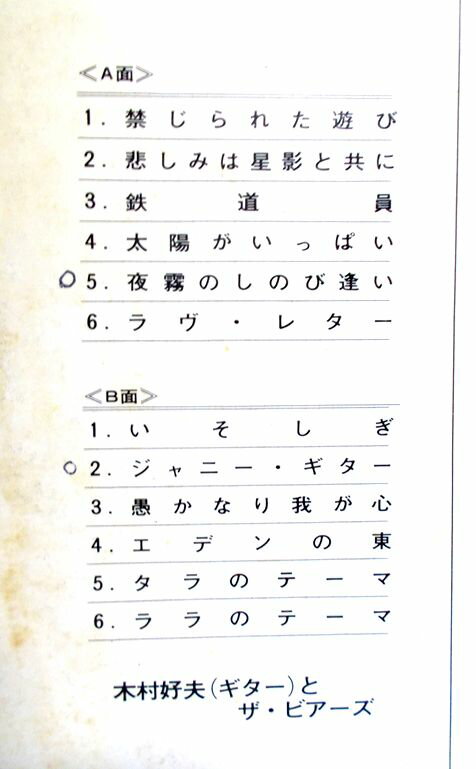 ＜A面＞
1. 禁じられた遊び
2. 悲しみは星影と共に
3. 鉄道員
4. 太陽がいっぱい
5. 夜霧のしのび逢い
6. ラヴ・レター
＜B面＞
1. いそしぎ
2. ジャニー・ギター
3. 愚かなり我が心
4. エデンの東
5. タラのテーマ
6. ララのテーマ
木村好夫(ギター)と
ザ・ビアーズ